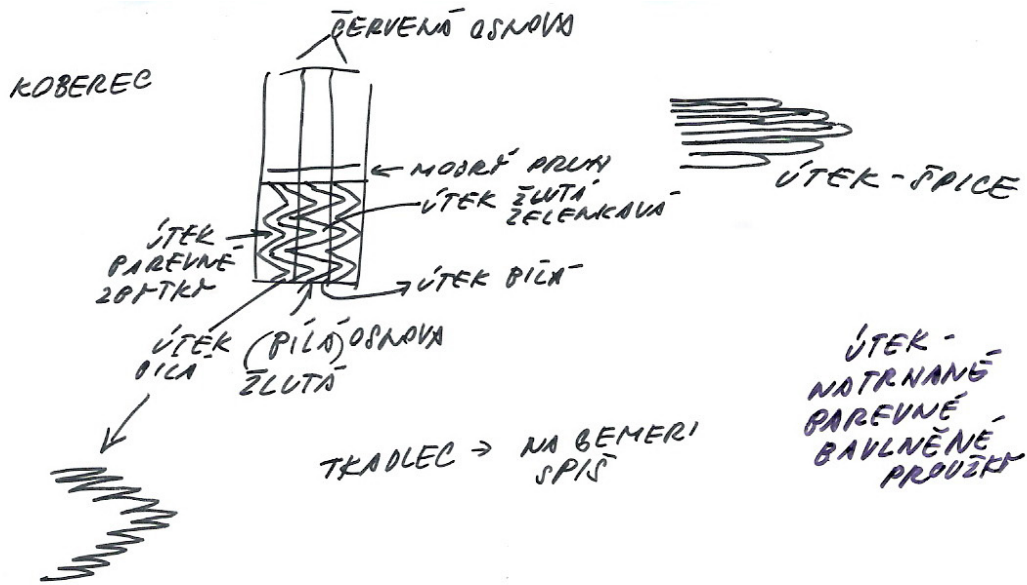 ČERVENÁ OSNOVA
KOBEREC
MODRÝ PRUH
ÚTEK ŽLUTÁ
ZELENKAVÁ
ÚTEK-ŠPICE
ÚTEK
BAREVNÉ
ZBYTKY
ÚTEK BÍLÁ
ÚTEK
BÍLÁ
(BÍLÁ) OSNOVA
ŽLUTÁ
ÚTEK-
NATRHANÉ
BAREVNÉ
BAVLNĚNÉ
PROUŽKY
TKADLEC → NA BEMERI
SPÍŠ